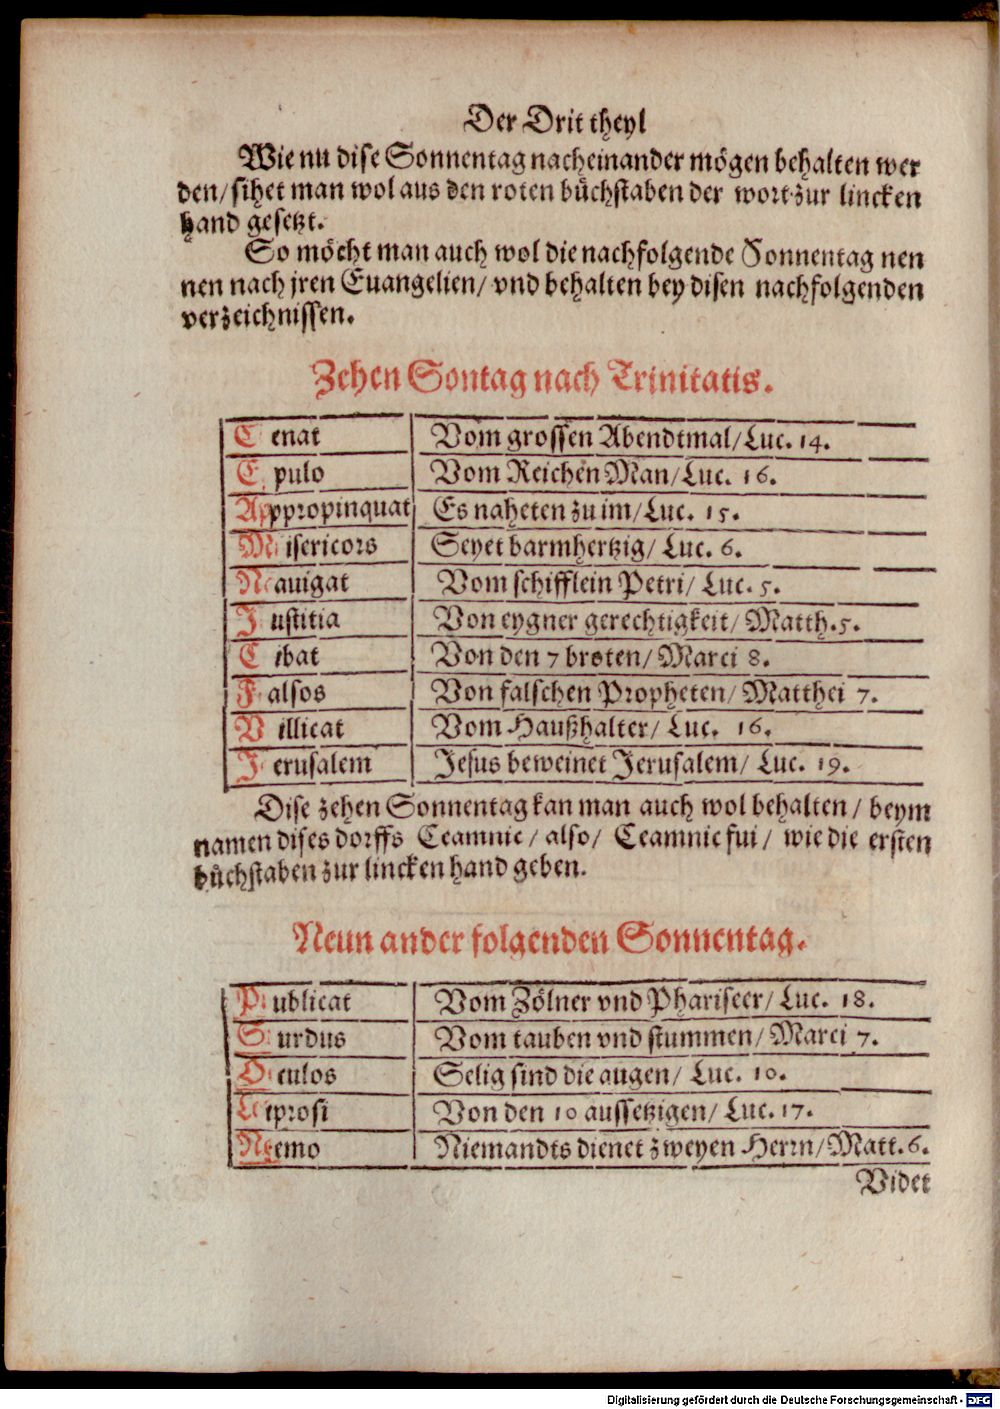 Der Drit theyl
Wie nu dise Sonnentag nacheinander mögen behalten wer
den/ sihet man wol aus den roten bůchstaben der wort zur lincken
hand gesetzt.
So möcht man auch wol die nachfolgende Sonnentag nen
nen nach jren Euangelien/ vnd behalten bey disen nachfolgenden
verzeichnissen.
Zehen Sontag nach Trinitatis.
Cenat Vom grossen Abendtmal/ Luc. 14.
Epulo Vom Reichen Man/ Luc. 16.
Appropinquat Es naheten zu im/ Luc. 15.
Misericors Seyet barmhertzig/ Luc. 6.
Nauigat Vom schifflein Petri/ Luc. 5.
Iustitia Von eygner gerechtigkeit/ Matth. 5.
Cibat Von den 7 broten/ Marci 8.
Falsos Von falschen Propheten/ Matthei 7.
Villicat Vom Haußhalter/ Luc. 16.
Jerusalem Jesus beweinet Jerusalem/ Luc. 19.
Dise zehen Sonnentag kan man auch wol behalten/ beym
namen dises dorffs Ceamnic/ also/ Ceamnic fui/ wie die ersten
bůchstaben zur lincken hand geben.
Neun ander folgenden Sonnentag.
Publicat Vom Zölner vnd Phariseer/ Luc. 18.
Surdus Vom tauben vnd stummen/ Marci 7.
Oculos Selig sind die augen/ Luc. 10.
Leprosi Von den 10 aussetzigen/ Luc. 17.
Nemo Niemandts dienet zweyen Herrn/ Matt. 6.
Videt
Digitalisierung gefördert durch die Deutsche Forschungsgemeinschaft - DFG